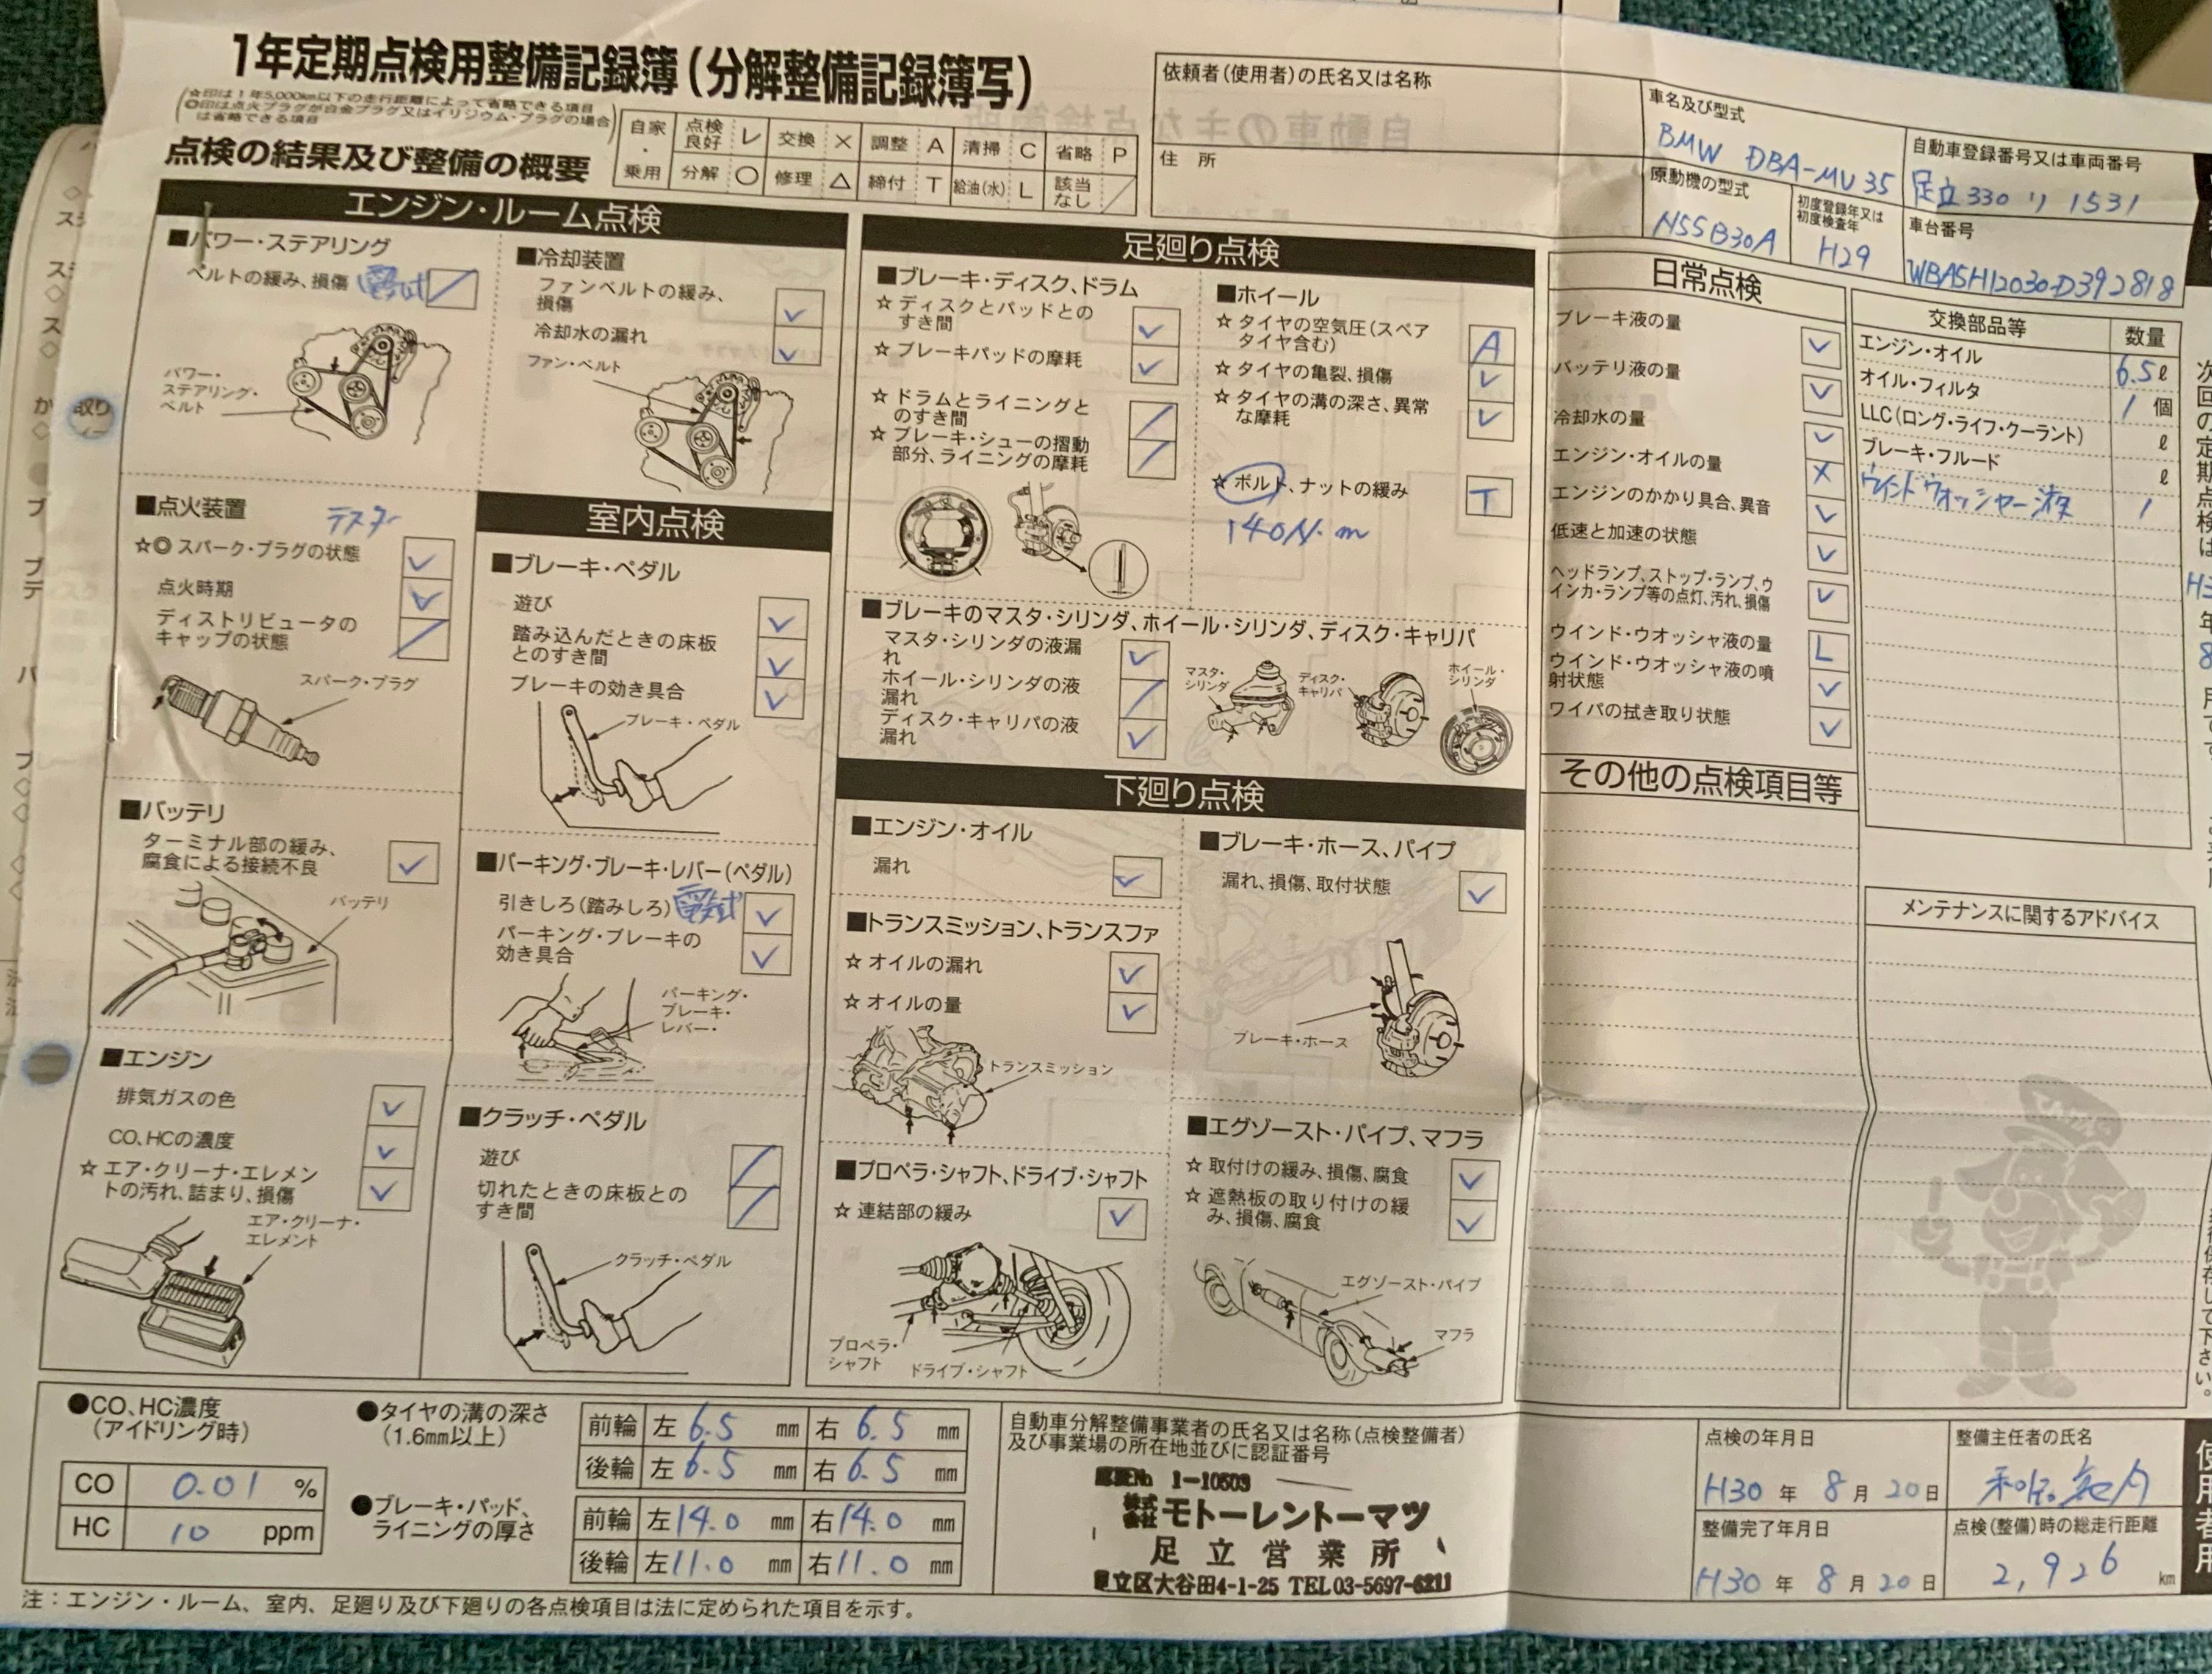 1年定期点検用整備記録簿(分解整備記録簿写)
☆印は1年5,000km以下の走行距離によって省略できる項目
◎印は点火プラグが白金プラグ又はイリジウム・プラグの場合
は省略できる項目
点検の結果及び整備の概要
自家・乗用
点検良好 レ 交換 × 調整 A 清掃 C 省略 P
分解 ○ 修理 △ 締付 T 給油(水) L 該当なし ／
依頼者(使用者)の氏名又は名称
住 所
車名及び型式
BMW DBA-MU35
自動車登録番号又は車両番号
足立330 リ 1531
原動機の型式
N55B30A
初度登録年又は
初度検査年
H29
車台番号
WBA5H12030D392818
エンジン・ルーム点検
■パワー・ステアリング
ベルトの緩み、損傷 電気式 ／
パワー・
ステアリング・
ベルト
■冷却装置
ファンベルトの緩み、
損傷 レ
冷却水の漏れ レ
ファン・ベルト
■点火装置 テスター
☆◎スパーク・プラグの状態 レ
点火時期 レ
ディストリビュータの
キャップの状態 ／
スパーク・プラグ
■バッテリ
ターミナル部の緩み、
腐食による接続不良 レ
バッテリ
■エンジン
排気ガスの色 レ
CO、HCの濃度 レ
☆エア・クリーナ・エレメン
トの汚れ、詰まり、損傷 レ
エア・クリーナ・
エレメント
室内点検
■ブレーキ・ペダル
遊び レ
踏み込んだときの床板
とのすき間 レ
ブレーキの効き具合 レ
ブレーキ・ペダル
■パーキング・ブレーキ・レバー(ペダル)
引きしろ(踏みしろ) 電気式 レ
パーキング・ブレーキの
効き具合 レ
パーキング・
ブレーキ・
レバー・
■クラッチ・ペダル
遊び ／
切れたときの床板との
すき間 ／
クラッチ・ペダル
足廻り点検
■ブレーキ・ディスク、ドラム
☆ディスクとパッドとの
すき間 レ
☆ブレーキパッドの摩耗 レ
☆ドラムとライニングと
のすき間 ／
☆ブレーキ・シューの摺動
部分、ライニングの摩耗 ／
■ホイール
☆タイヤの空気圧(スペア
タイヤ含む) A
☆タイヤの亀裂、損傷 レ
☆タイヤの溝の深さ、異常
な摩耗 レ
☆ボルト、ナットの緩み T
140N・m
■ブレーキのマスタ・シリンダ、ホイール・シリンダ、ディスク・キャリパ
マスタ・シリンダの液漏
れ レ
ホイール・シリンダの液
漏れ ／
ディスク・キャリパの液
漏れ レ
マスタ・
シリンダ
ディスク・
キャリパ
ホイール・
シリンダ
下廻り点検
■エンジン・オイル
漏れ レ
■トランスミッション、トランスファ
☆オイルの漏れ レ
☆オイルの量 レ
トランスミッション
■プロペラ・シャフト、ドライブ・シャフト
☆連結部の緩み レ
プロペラ・
シャフト
ドライブ・シャフト
■ブレーキ・ホース、パイプ
漏れ、損傷、取付状態 レ
ブレーキ・ホース
■エグゾースト・パイプ、マフラ
☆取付けの緩み、損傷、腐食 レ
☆遮熱板の取り付けの緩
み、損傷、腐食 レ
エグゾースト・パイプ
マフラ
日常点検
ブレーキ液の量 レ
バッテリ液の量 レ
冷却水の量 レ
エンジン・オイルの量 ×
エンジンのかかり具合、異音 レ
低速と加速の状態 レ
ヘッドランプ、ストップ・ランプ、ウ
インカ・ランプ等の点灯、汚れ、損傷 レ
ウインド・ウオッシャ液の量 L
ウインド・ウオッシャ液の噴
射状態 レ
ワイパの拭き取り状態 レ
その他の点検項目等
交換部品等 数量
エンジン・オイル 6.5 ℓ
オイル・フィルタ 1 個
LLC(ロング・ライフ・クーラント) ℓ
ブレーキ・フルード ℓ
ウインドウォッシャー液 1
メンテナンスに関するアドバイス
●CO、HC濃度
(アイドリング時)
CO 0.01 %
HC 10 ppm
●タイヤの溝の深さ
(1.6mm以上)
前輪 左 6.5 mm 右 6.5 mm
後輪 左 6.5 mm 右 6.5 mm
●ブレーキ・パッド、
ライニングの厚さ
前輪 左 14.0 mm 右 14.0 mm
後輪 左 11.0 mm 右 11.0 mm
自動車分解整備事業者の氏名又は名称(点検整備者)
及び事業場の所在地並びに認証番号
1-10503
株式会社 モトーレントーマツ
足立営業所
足立区大谷田4-1-25 TEL03-5697-6211
点検の年月日
H30 年 8 月 20 日
整備主任者の氏名
整備完了年月日
H30 年 8 月 20 日
点検(整備)時の総走行距離
2,926 km
注：エンジン・ルーム、室内、足廻り及び下廻りの各点検項目は法に定められた項目を示す。
使用者用